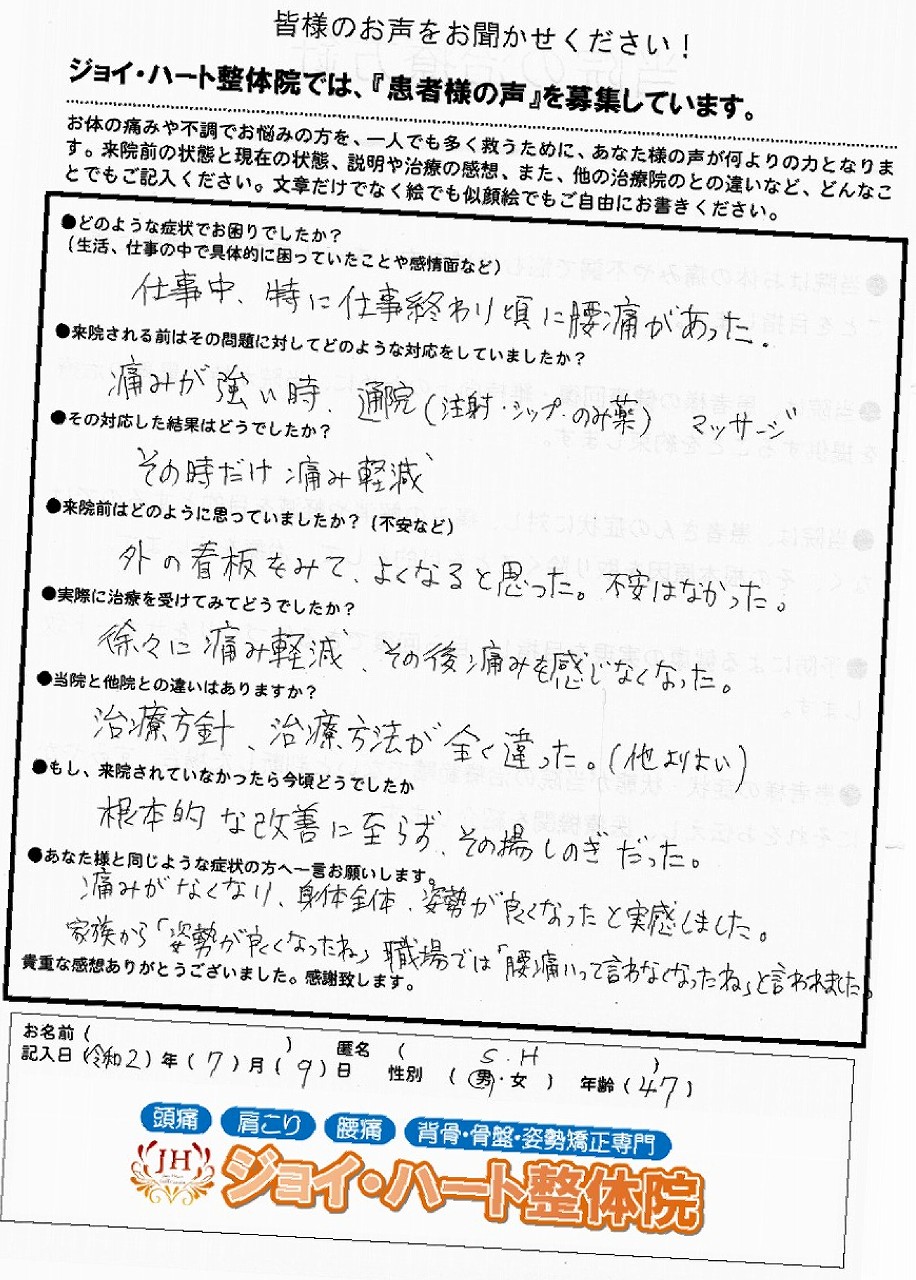 皆様のお声をお聞かせください!
ジョイ・ハート整体院では、『患者様の声』を募集しています。
お体の痛みや不調でお悩みの方を、一人でも多く救うために、あなた様の声が何よりの力となりま
す。来院前の状態と現在の状態、説明や治療の感想、また、他の治療院のとの違いなど、どんなこ
とでもご記入ください。文章だけでなく絵でも似顔絵でもご自由にお書きください。
●どのような症状でお困りでしたか?
(生活、仕事の中で具体的に困っていたことや感情面など)
仕事中、特に仕事終わり頃に腰痛があった。
●来院される前はその問題に対してどのような対応をしていましたか?
痛みが強い時、通院(注射・シップ・のみ薬) マッサージ
●その対応した結果はどうでしたか?
その時だけ痛み軽減
●来院前はどのように思っていましたか?(不安など)
外の看板をみて、よくなると思った。不安はなかった。
●実際に治療を受けてみてどうでしたか?
徐々に痛み軽減、その後痛みを感じなくなった。
●当院と他院との違いはありますか?
治療方針、治療方法が全く違った。(他よりよい)
●もし、来院されていなかったら今頃どうでしたか
根本的な改善に至らず、その場しのぎだった。
●あなた様と同じような症状の方へ一言お願いします。
痛みがなくなり、身体全体、姿勢が良くなったと実感しました。
家族から「姿勢が良くなったね」職場では「腰痛いって言わなくなったね」と言われました。
貴重な感想ありがとうございました。感謝致します。
お名前( ) 匿名 ( S.H )
記入日(令和2)年(7)月(9)日 性別 (男・女) 年齢(47)
頭痛 肩こり 腰痛 背骨・骨盤・姿勢矯正専門
JH ジョイ・ハート整体院